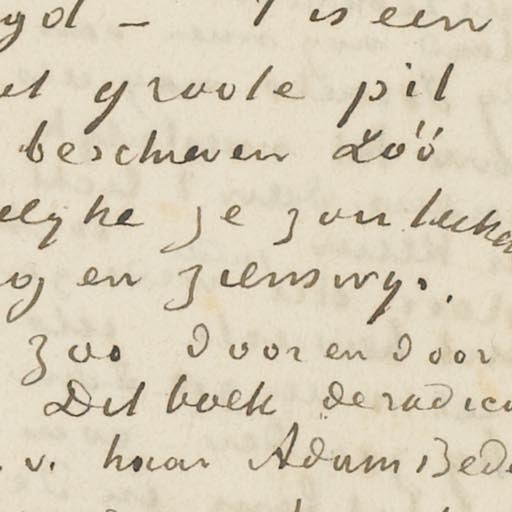 gd – 't is een
et groote pil
beschreven zóó
elyke je zou lucht
og en zienswys.
zoo door en door
Dit boek de radica
v. haar Adam Bede